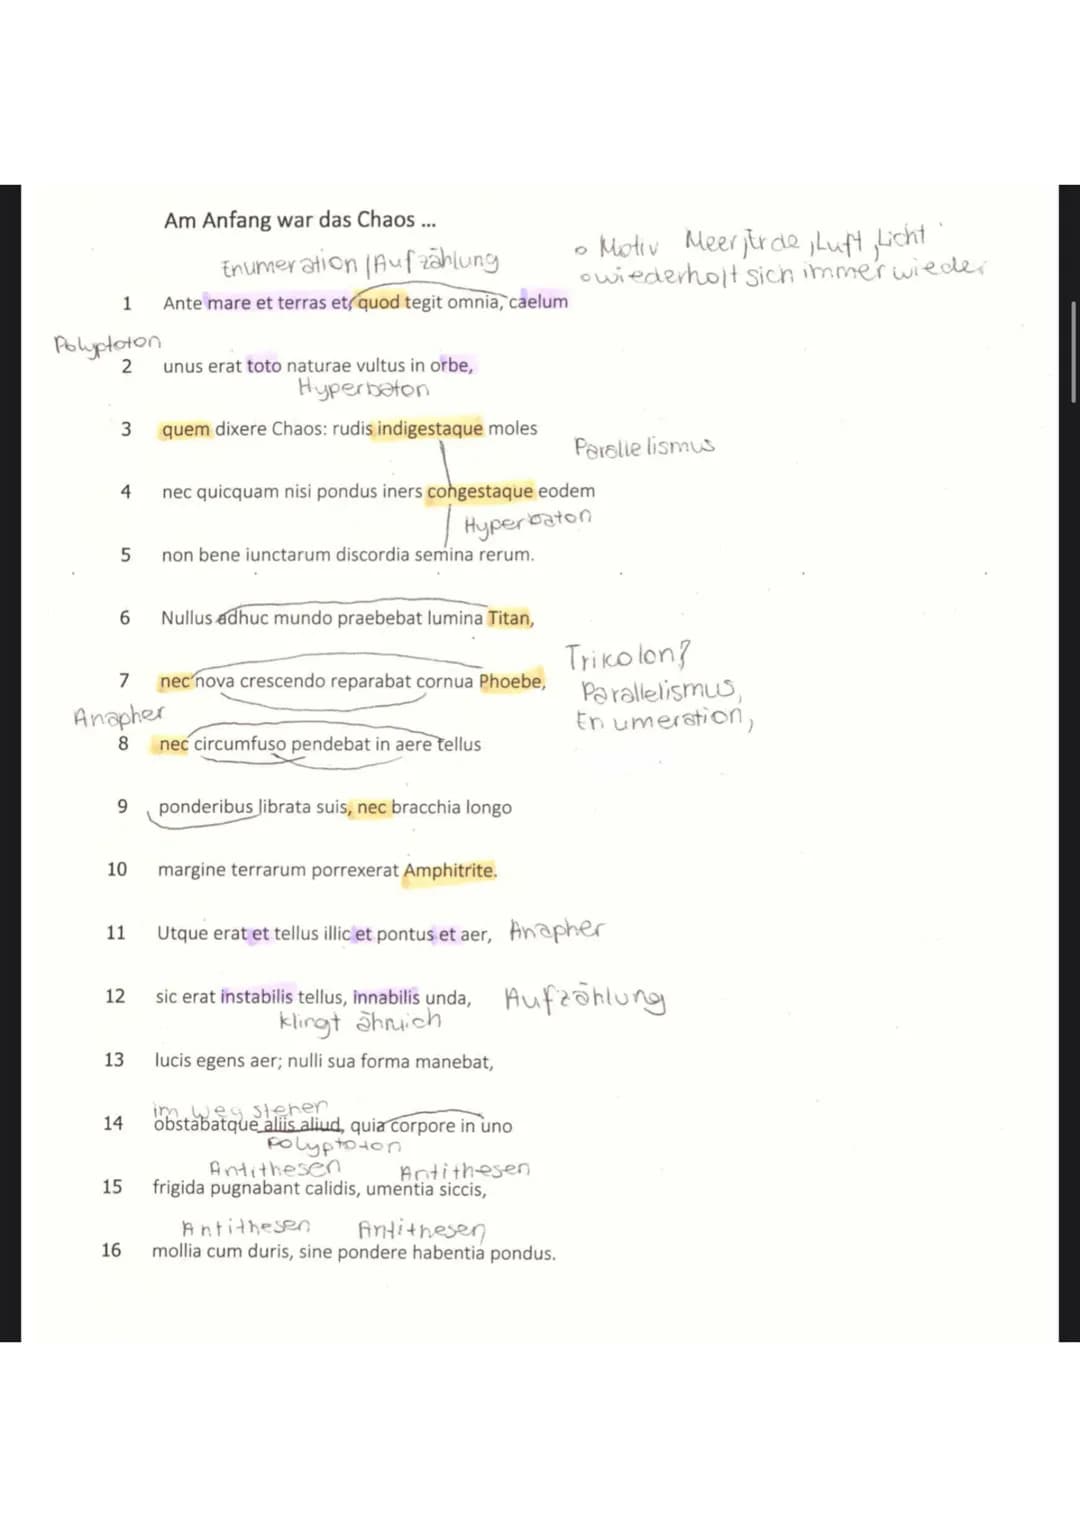 Am Anfang war das Chaos ...
Enumeration / Aufzählung
o Motiv Meer, Erde, Luft, Licht
o wiederholt sich immer wieder
1 Ante mare et terras et, quod tegit omnia, caelum
Polyptoton
2 unus erat toto naturae vultus in orbe,
Hyperbaton
3 quem dixere Chaos: rudis indigestaque moles
Parallelismus
4 nec quicquam nisi pondus iners congestaque eodem
Hyperbaton
5 non bene iunctarum discordia semina rerum.
6 Nullus adhuc mundo praebebat lumina Titan,
Trikolon?
7 nec nova crescendo reparabat cornua Phoebe,
Parallelismus,
Anapher
Enumeration,
8 nec circumfuso pendebat in aere tellus
9 ponderibus librata suis, nec bracchia longo
10 margine terrarum porrexerat Amphitrite.
11 Utque erat et tellus illic et pontus et aer, Anapher
12 sic erat instabilis tellus, innabilis unda, Aufzählung
klingt ähnlich
13 lucis egens aer; nulli sua forma manebat,
im Weg stehen
14 obstabatque aliis aliud, quia corpore in uno
Polyptoton
Antithesen Antithesen
15 frigida pugnabant calidis, umentia siccis,
Antithesen Antithesen
16 mollia cum duris, sine pondere habentia pondus.